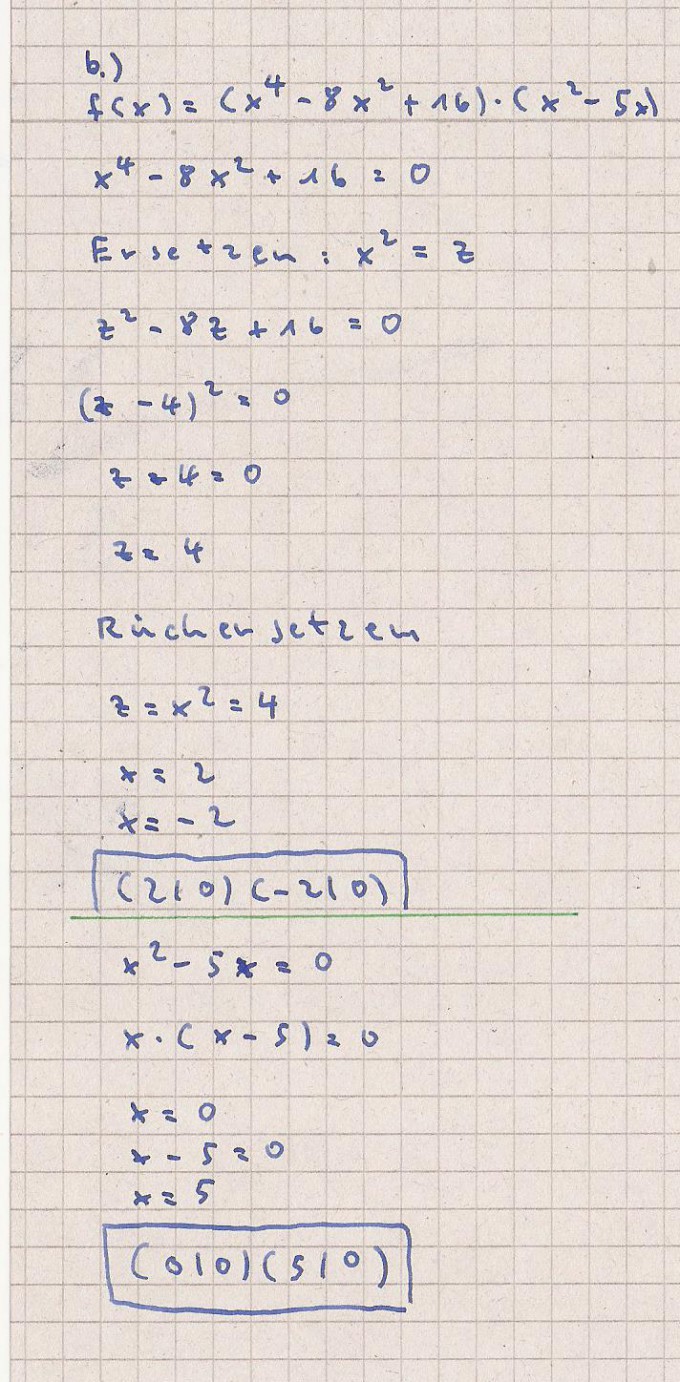 b.)
f(x) = (x⁴ - 8x² + 16) · (x² - 5x)
x⁴ - 8x² + 16 = 0
Ersetzen : x² = z
z² - 8z + 16 = 0
(z - 4)² = 0
z - 4 = 0
z = 4
Rückersetzen
z = x² = 4
x = 2
x = -2
(2|0) (-2|0)
x² - 5x = 0
x · (x - 5) = 0
x = 0
x - 5 = 0
x = 5
(0|0) (5|0)